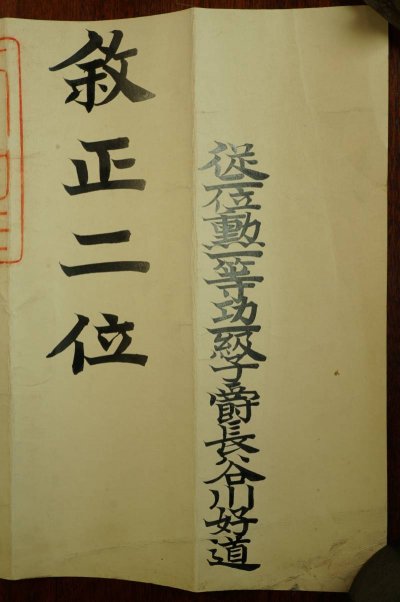 從二位勲一等功一級子爵長谷川好道
敘正二位